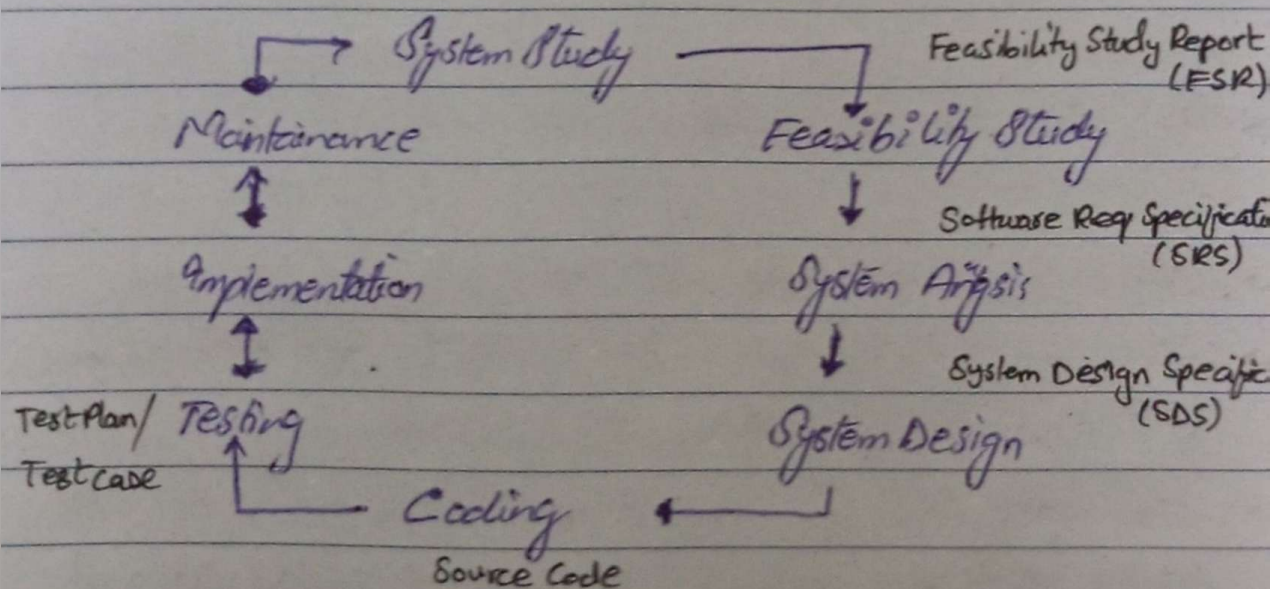 System Study
Feasibility Study Report
(FSR)
Maintainance
Feasibility Study
Software Req Specificatio
(SRS)
Implementation
System Anysis
System Design Specific
(SDS)
Test Plan/
Testing
System Design
Test case
Coding
Source Code